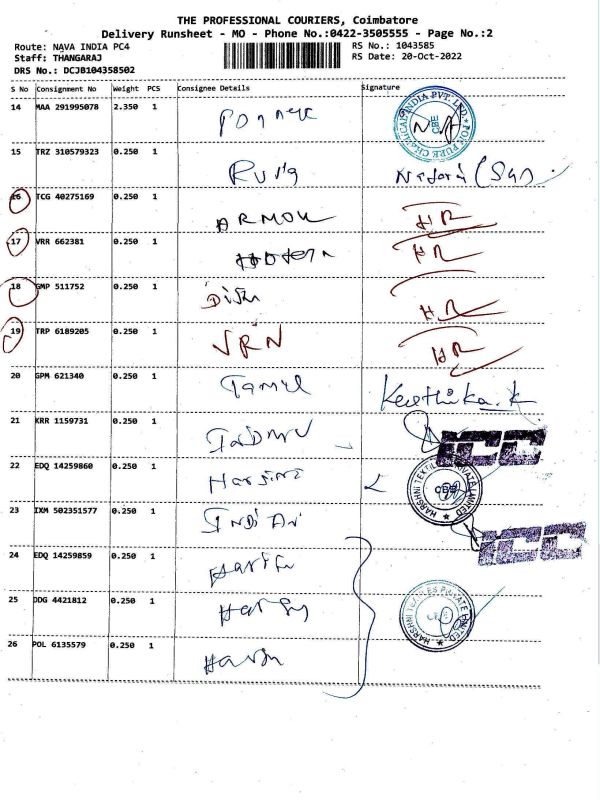 THE PROFESSIONAL COURIERS, Coimbatore
Delivery Runsheet - MO - Phone No.:0422-3505555 - Page No.:2
Route: NAVA INDIA PC4 RS No.: 1043585
Staff: THANGARAJ RS Date: 20-Oct-2022
DRS No.: DCJB104358502
S No Consignment No Weight PCS Consignee Details Signature
14 MAA 291995078 2.350 1
15 TRZ 310579323 0.250 1
16 TCG 40275169 0.250 1 ARMOU HR
17 VRR 662381 0.250 1 HR
18 GMP 511752 0.250 1 HR
19 TRP 6189205 0.250 1 VRN HR
20 GPM 621340 0.250 1 Tamil Keerthika.k
21 KRR 1159731 0.250 1 ICC
22 EDQ 14259860 0.250 1 HARSHNI TEXTILES PRIVATE LIMITED CBE
23 IXM 502351577 0.250 1 INDIAN ICC
24 EDQ 14259859 0.250 1
25 DDG 4421812 0.250 1 HARSHNI TEXTILES PRIVATE LIMITED
26 POL 6135579 0.250 1